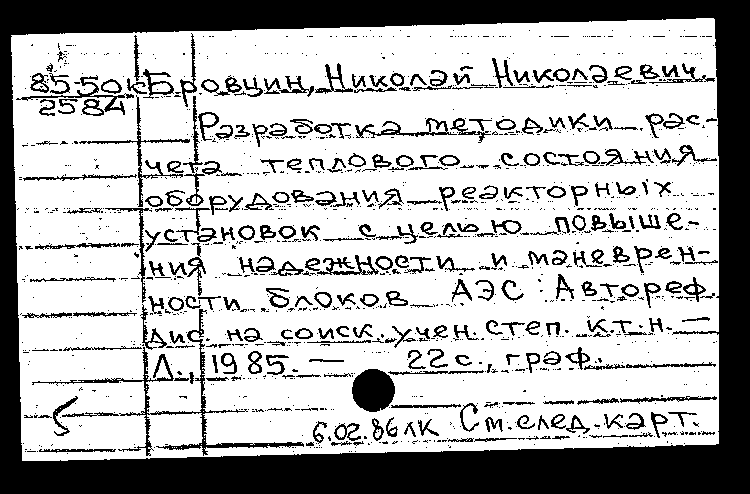 85-50к Бровцин, Николай Николаевич.
2584
Разработка методики рас-
чета теплового состояния
оборудования реакторных
установок с целью повыше-
ния надежности и маневрен-
ности блоков АЭС : Автореф.
дис. на соиск. учен. степ. к.т.н. —
Л., 1985. — 22 с., граф.
5
6.02.86 ЛК См. след. карт.